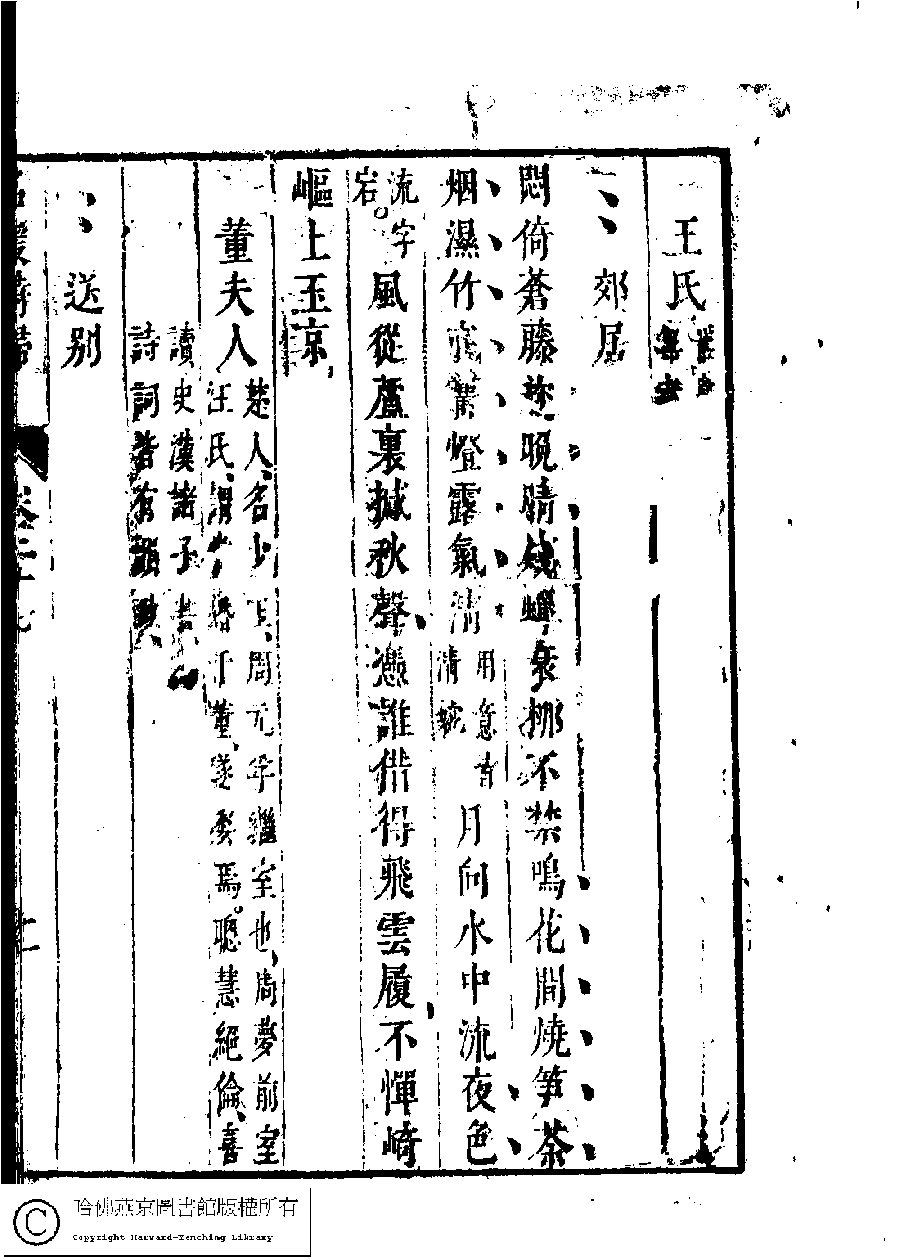 王氏
郊居
悶倚蒼藤晚晴蟬衰挪不禁鳴花間燒笋茶
烟濕竹底燈露氣清用意清月向水中流夜色
流字宕。風從蘆裏撼秋聲、憑誰借得飛雲履、不憚崎
嶇上玉京、
董夫人楚人、名少玉、周元孚繼室也、周夢前室汪氏、謂于董、遂娶焉。聰慧絕倫、喜
讀史漢諸子書、詩詞皆有韻致、
送別
名媛詩歸
卷二十七
十一
哈佛燕京圖書館版權所有
Copyright Harvard-Yenching Library